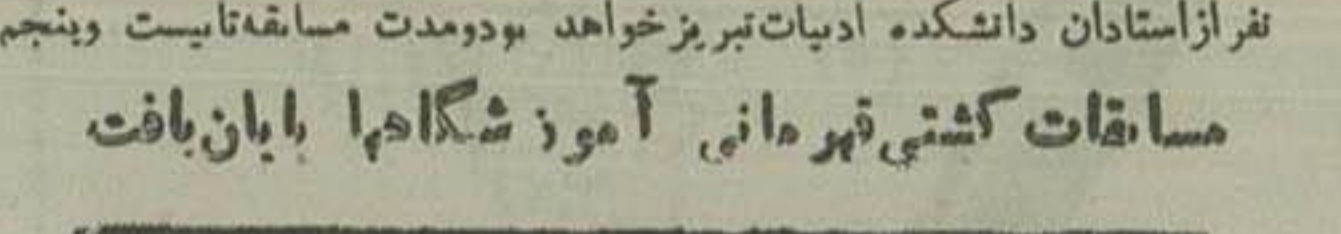 نفر از استادان دانشکده ادبیات تبریز خواهد بود و مدت مسابقه تا بیست و پنجم
مسابقات کشتی قهرمانی آموزشگاهها پایان یافت